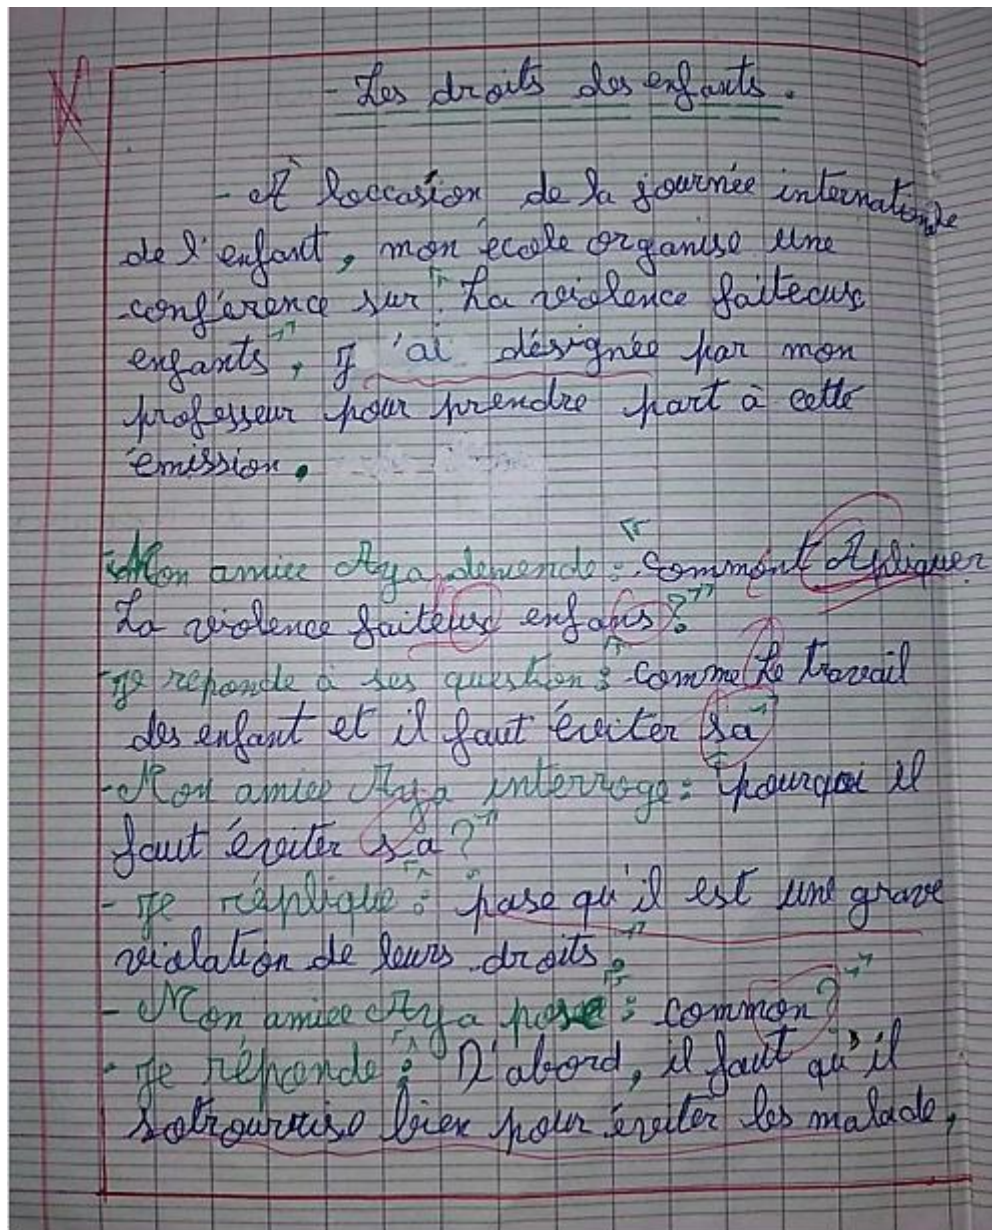 - Les droits des enfants.
- À l'occasion de la journée internationale
de l'enfant, mon école organise une
conférence sur "La violence faiteaux
enfants", j'ai désignée par mon
professeur pour prendre part à cette
émission.
- Mon amiee Aya demende : "comment Apliquer
La violence faiteux enfans ?"
- Je reponde à ses question : "comme Le travail
des enfant et il faut éviter sa"
- Mon amiee Aya interroge : "pourqoi il
faut éviter sa ?"
- Je réplique : "pase qu'il est une grave
violation de leurs droits."
- Mon amiee Aya pose : "common ?"
- Je réponde : "D'abord, il faut qu'il
bien pour éviter les malade,